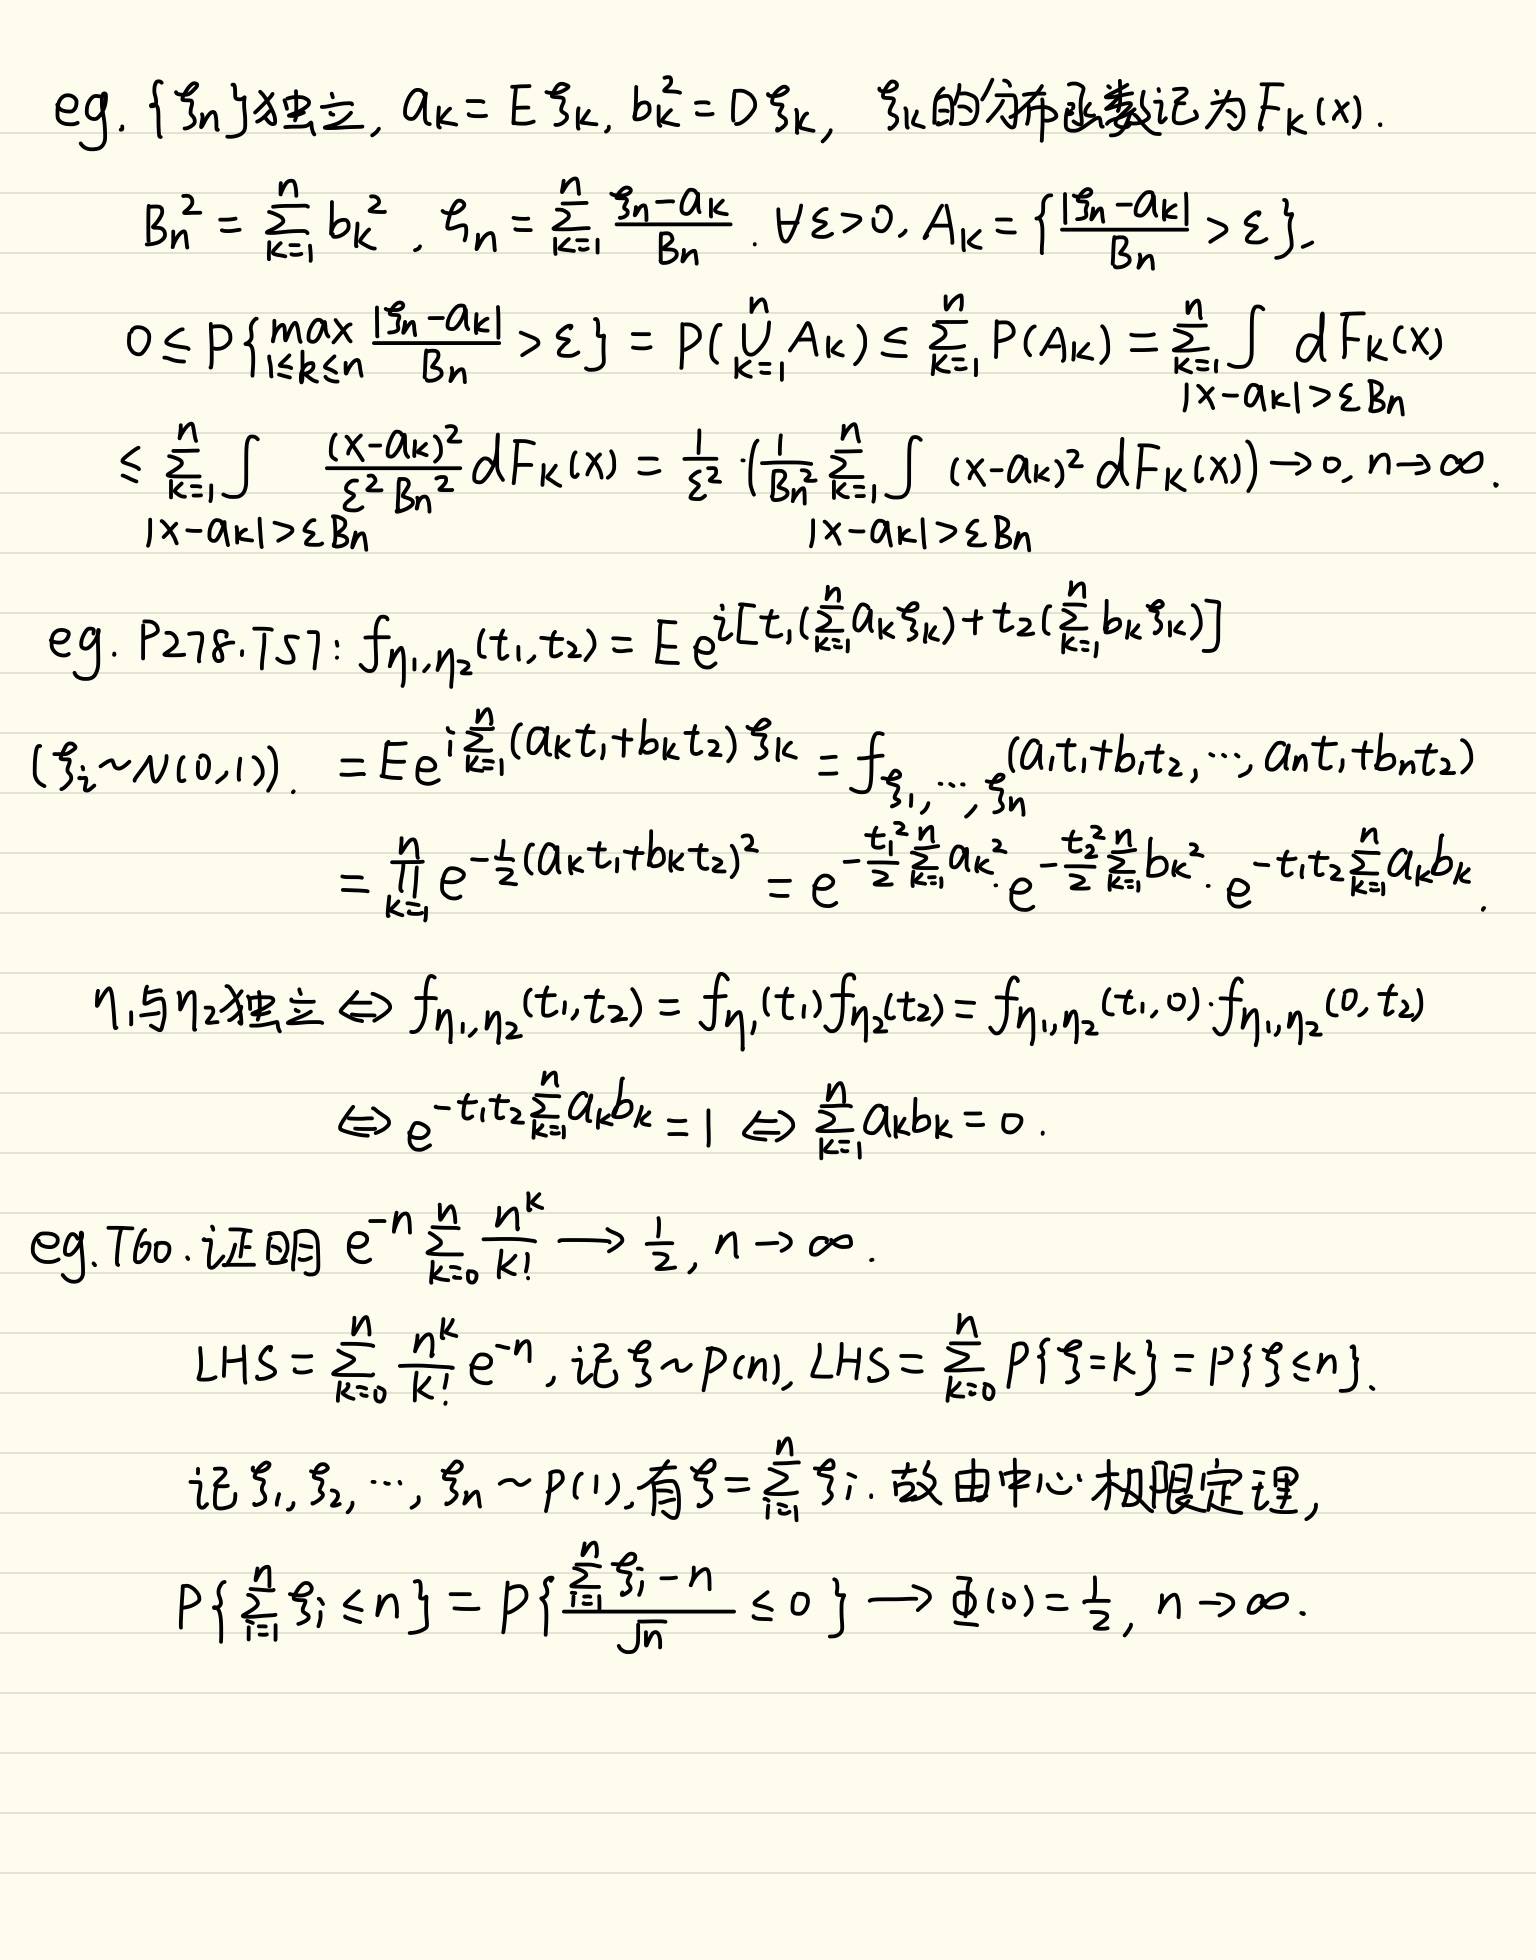 eg. {ξn}独立, ak = Eξk, bk² = Dξk, ξk的分布函数记为Fk(x).
Bn² = ∑_{k=1}^{n} bk², ζn = ∑_{k=1}^{n} (ξn-ak)/Bn. ∀ε>0, Ak = {|ξn-ak|/Bn > ε},
0 ≤ P{max_{1≤k≤n} |ξn-ak|/Bn > ε} = P(∪_{k=1}^{n} Ak) ≤ ∑_{k=1}^{n} P(Ak) = ∑_{k=1}^{n} ∫_{|x-ak|>εBn} dFk(x)
≤ ∑_{k=1}^{n} ∫_{|x-ak|>εBn} (x-ak)²/(ε²Bn²) dFk(x) = 1/ε² · (1/Bn² ∑_{k=1}^{n} ∫_{|x-ak|>εBn} (x-ak)² dFk(x)) → 0, n → ∞.
eg. P278.T57: f_{η1,η2}(t1,t2) = E e^{i[t1(∑_{k=1}^{n} akξk)+t2(∑_{k=1}^{n} bkξk)]}
(ξi ~ N(0,1)). = E e^{i∑_{k=1}^{n}(akt1+bkt2)ξk} = f_{ξ1,…,ξn}(a1t1+b1t2,…,ant1+bnt2)
= ∏_{k=1}^{n} e^{-1/2(akt1+bkt2)²} = e^{-t1²/2 ∑_{k=1}^{n} ak²} · e^{-t2²/2 ∑_{k=1}^{n} bk²} · e^{-t1t2 ∑_{k=1}^{n} akbk}.
η1与η2独立 ⇔ f_{η1,η2}(t1,t2) = f_{η1}(t1)f_{η2}(t2) = f_{η1,η2}(t1,0)·f_{η1,η2}(0,t2)
⇔ e^{-t1t2 ∑_{k=1}^{n} akbk} = 1 ⇔ ∑_{k=1}^{n} akbk = 0.
eg. T60. 证明 e^{-n} ∑_{k=0}^{n} n^k/k! → 1/2, n → ∞.
LHS = ∑_{k=0}^{n} n^k/k! e^{-n}, 记ξ~P(n), LHS = ∑_{k=0}^{n} P{ξ=k} = P{ξ≤n}.
记ξ1,ξ2,…,ξn ~ P(1),有ξ=∑_{i=1}^{n} ξi. 故由中心极限定理,
P{∑_{i=1}^{n} ξi ≤ n} = P{(∑_{i=1}^{n} ξi - n)/√n ≤ 0} → Φ(0) = 1/2, n → ∞.